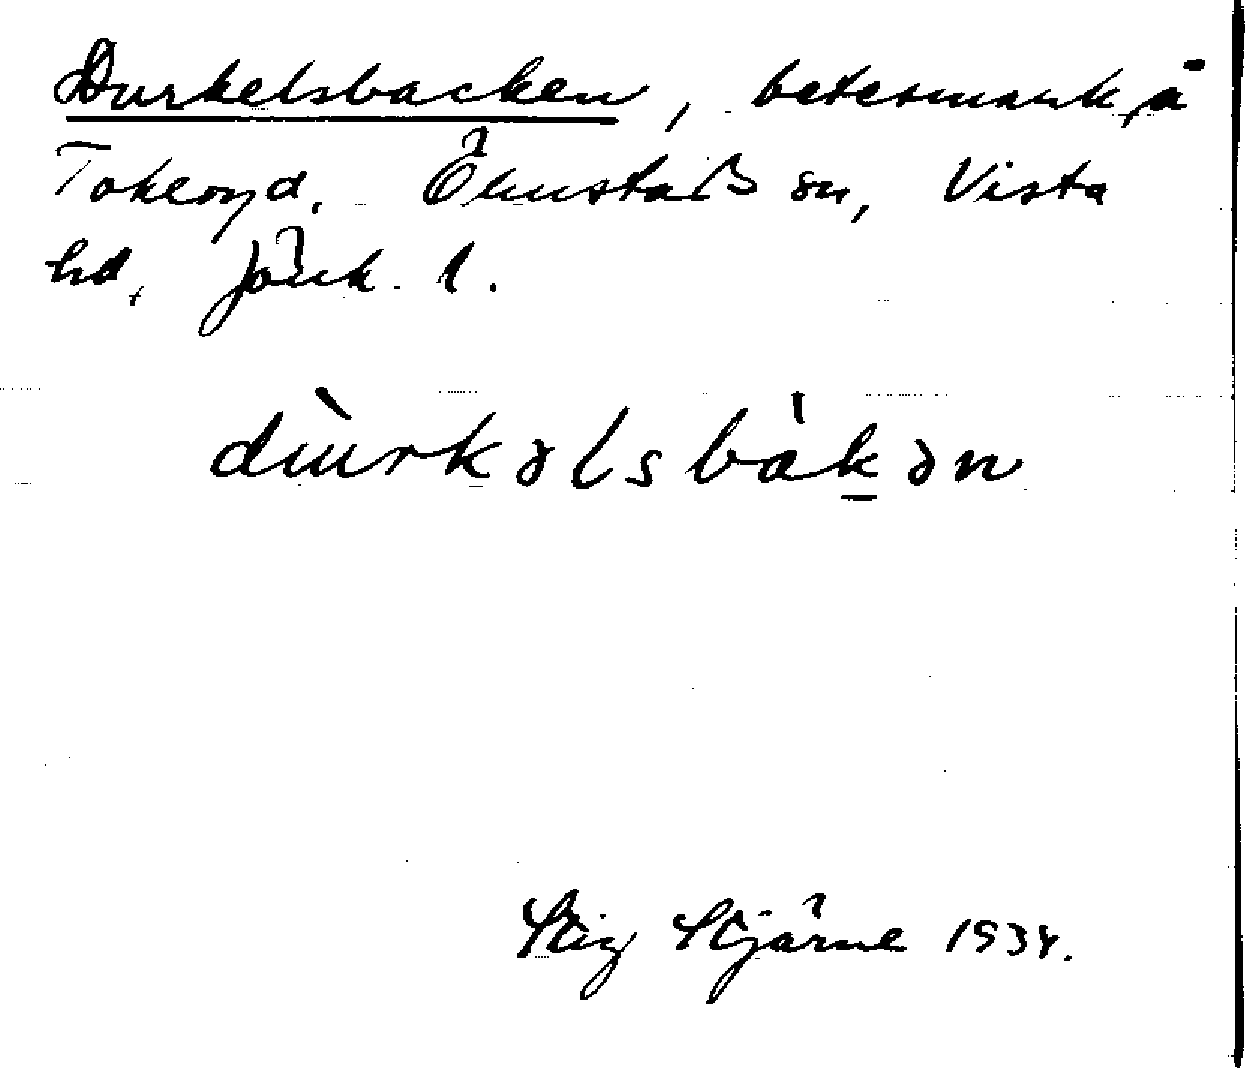 Durkelsbacken, betesmark å
Tokeryd. Ölmstads sn, Vista
hd, Jönk. l.
dùrkəlsbàkən
Stig Stjärne 1934.